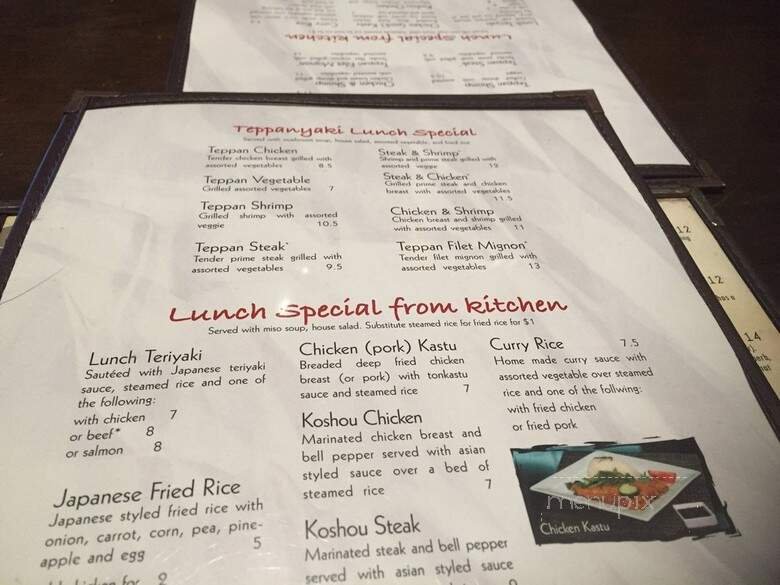 Lunch Special from kitchen
Teppan Steak
Teppan Shrimp
Teppan Filet Mignon
Chicken & Shrimp
Teppanyaki Lunch Special
Served with mushroom soup, house salad, assorted vegetable, and fried rice
Teppan Chicken
Tender chicken breast grilled with
assorted vegetables 8.5
Teppan Vegetable
Grilled assorted vegetables 7
Teppan Shrimp
Grilled shrimp with assorted
veggie 10.5
Teppan Steak*
Tender prime steak grilled with
assorted vegetables 9.5
Steak & Shrimp*
Shrimp and prime steak grilled with
assorted veggie 12
Steak & Chicken*
Grilled prime steak and chicken
breast with assorted vegetables
11.5
Chicken & Shrimp
Chicken breast and shrimp grilled
with assorted vegetables 11
Teppan Filet Mignon*
Tender filet mignon grilled with
assorted vegetables 13
Lunch Special from kitchen
Served with miso soup, house salad. Substitute steamed rice for fried rice for $1
Lunch Teriyaki
Sautéed with Japanese teriyaki
sauce, steamed rice and one of
the following:
with chicken 7
or beef* 8
or salmon 8
Japanese Fried Rice
Japanese styled fried rice with
onion, carrot, corn, pea, pine-
apple and egg 5
Chicken (pork) Kastu
Breaded deep fried chicken
breast (or pork) with tonkastu
sauce and steamed rice 7
Koshou Chicken
Marinated chicken breast and
bell pepper served with asian
styled sauce over a bed of
steamed rice 7
Koshou Steak
Marinated steak and bell pepper
served with asian styled sauce
Curry Rice 7.5
Home made curry sauce with
assorted vegetable over steamed
rice and one of the follwing:
with fried chicken
or fried pork
menupix
Chicken Kastu
12
12
14